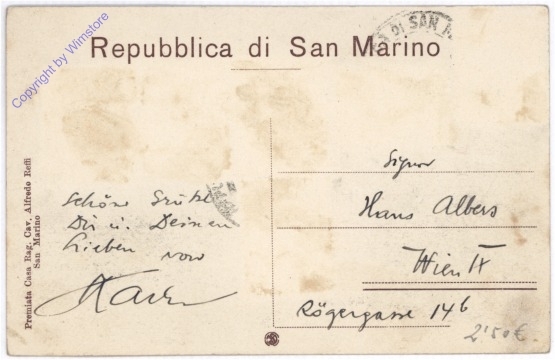 Copyright by Wimstore
DI SAN M
Repubblica di San Marino
Premiata Casa Rag. Cav. Alfredo Reffi
San Marino
Schöne Grüße
Dir u. Deinen
Lieben von
Signor
Hans Albers
Wien IX
Rögergasse 14b
2'50 €